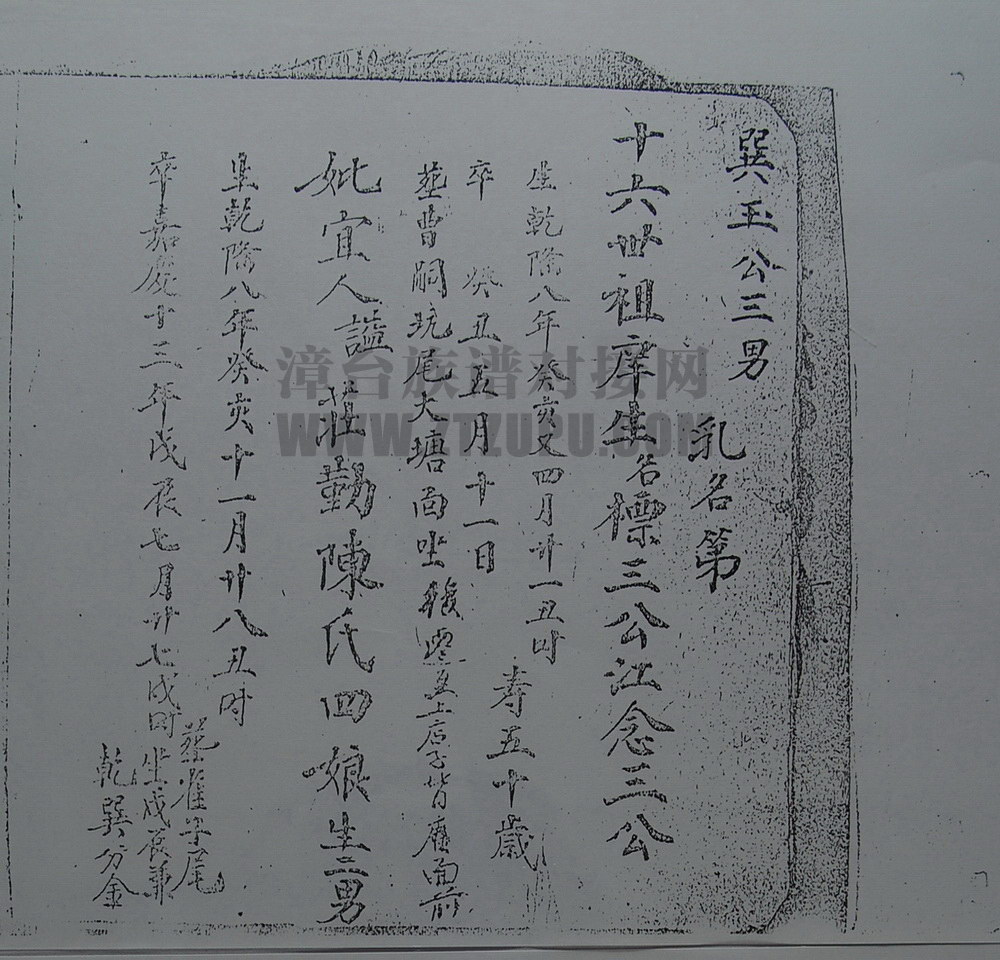 巽玉公三男
乳名第
十六世祖庠生名標三公江念三公
生乾隆八年癸亥又四月廿一丑时
卒 癸丑五月十一日 寿五十歲
葬曹嗣坑尾大塘面坐 上店子背 面前
妣宜人諡 莊勤陳氏四娘生二男
生乾隆八年癸亥十一月廿八丑时
卒嘉慶十三年戊辰七月廿七戌时
葬 子尾
坐戌辰兼
乾巽分金
漳台族谱对接网
WWW.ZTZUPU.COM